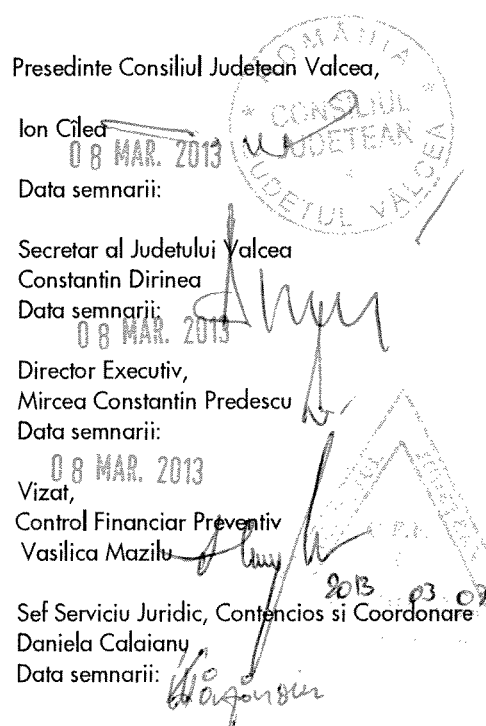 Presedinte Consiliul Judetean Valcea,
ROMÂNIA
* CONSILIUL *
JUDETEAN
JUDETUL VÂLCEA
Ion Cîlea
08 MAR. 2013
Data semnarii:
Secretar al Judetului Valcea
Constantin Dirinea
Data semnarii:
08 MAR. 2013
Director Executiv,
Mircea Constantin Predescu
Data semnarii:
08 MAR. 2013
Vizat,
Control Financiar Preventiv
Vasilica Mazilu
2013 03 08
Sef Serviciu Juridic, Contencios si Coordonare
Daniela Calaianu
Data semnarii: